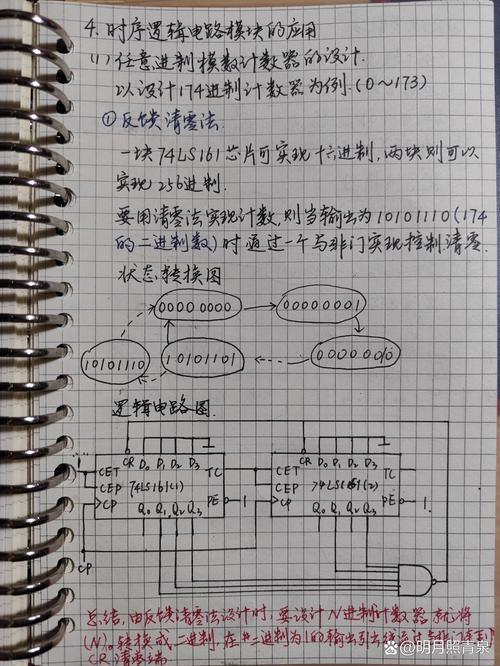 4. 时序逻辑电路模块的应用
(1) 任意进制模数计数器的设计.
以设计174进制计数器为例.(0~173)
①反馈清零法.
一块74LS161芯片可实现十六进制,两块则可以
实现256进制.
要用清零法实现计数,则当输出为10101110(174
的二进制数)时通过一个与非门实现控制清零.
状态转换图
0000 0000
00000001
10101110
10101101
00000010
逻辑电路图.
CR D0 D1 D2 D3
CET TC
CEP 74LS161(1)
CP PE 1
Q0 Q1 Q2 Q3
CR D0 D1 D2 D3
CET TC
CEP 74LS161(2)
CP PE 1.
Q0 Q1 Q2 Q3
1
CP
&
总结:由反馈清零法设计时,要设计N进制计数器,就将
(N)转换成二进制,在二进制为1的输出引出线通过与非门连到
CR清零端
@明月照青泉